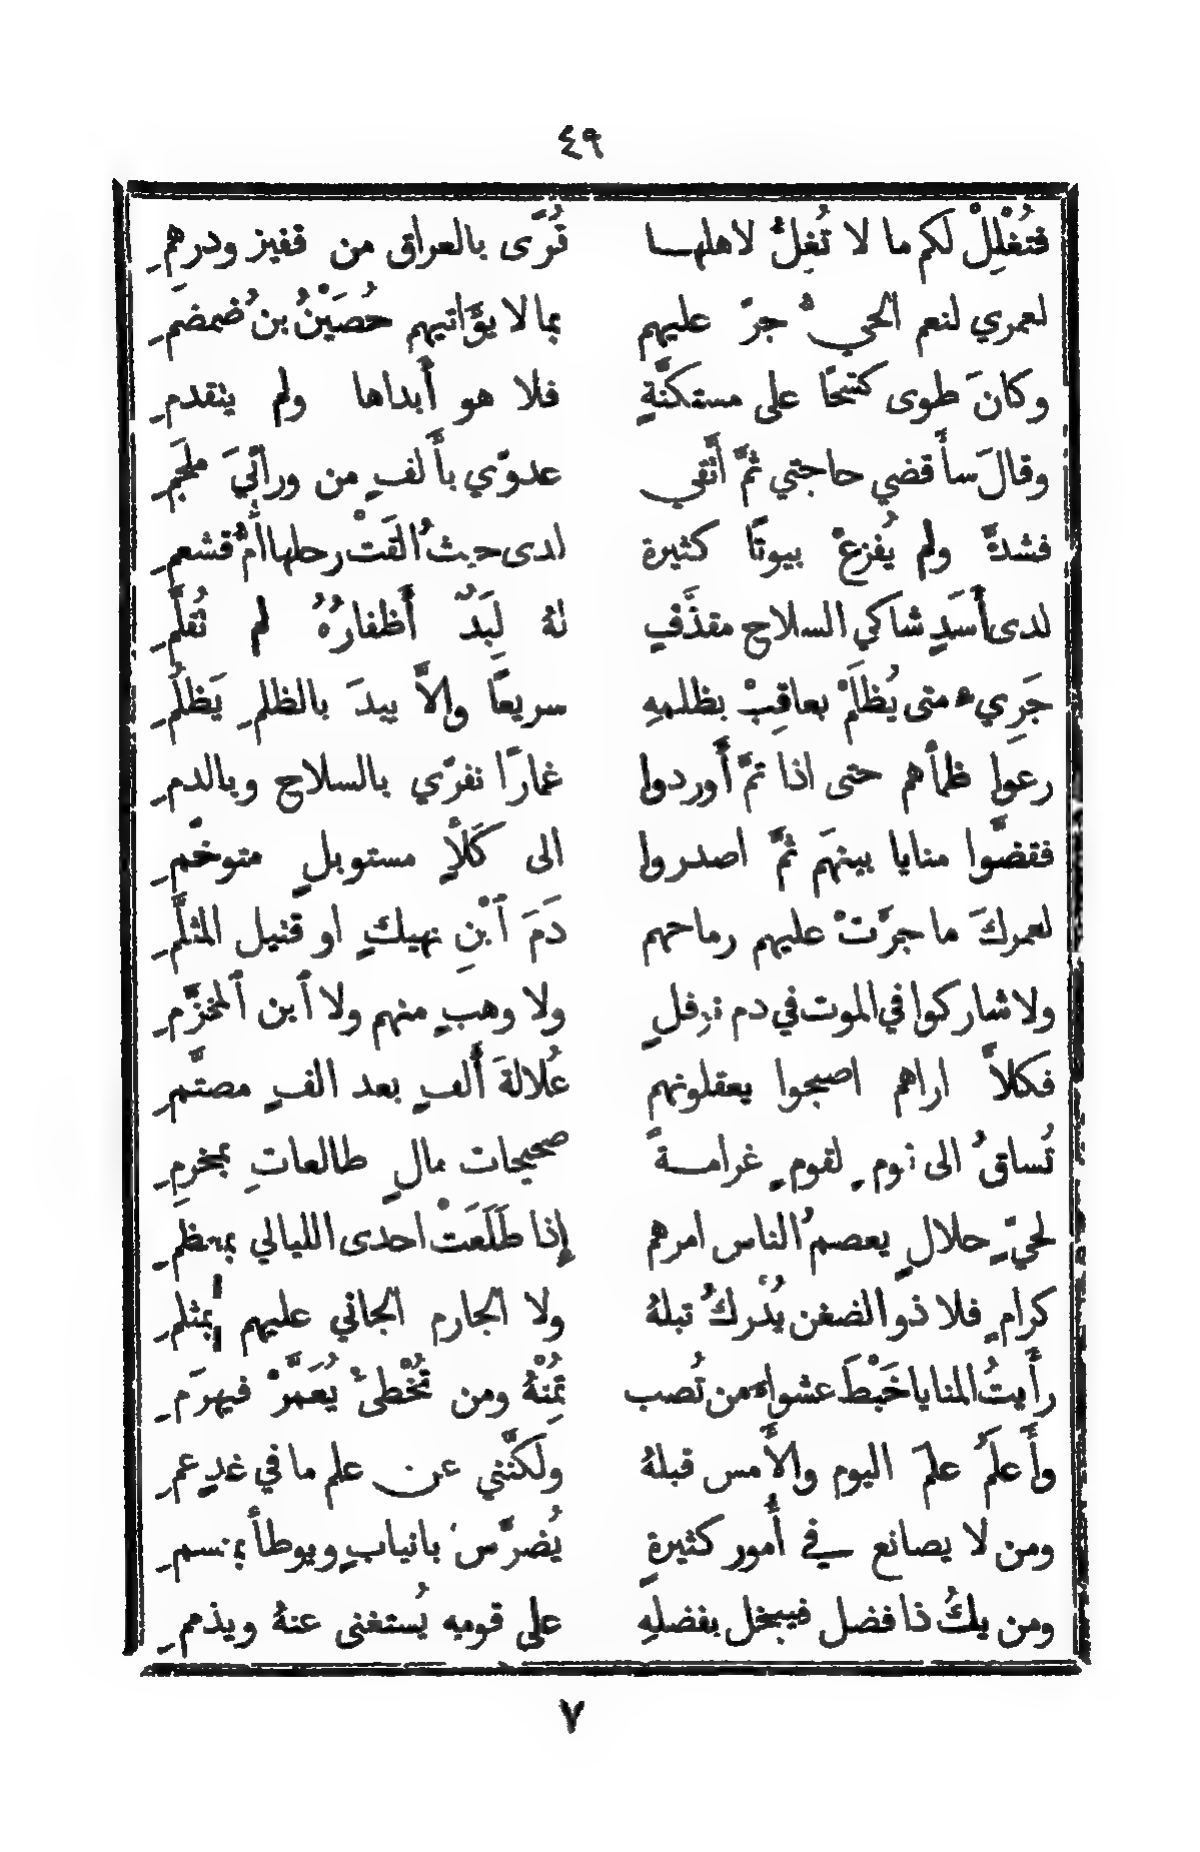 ٤٩
فتُغْلِلْ لكم ما لا تُغِلُّ لاهلهـا قُرًى بالعراق من قفيز ودرهمِ
لعمري لنعم الحيُّ جرَّ عليهم بما لا يوَّاتيهم حُصَيْنُ بنُ ضمضمِ
وكانَ طوى كشحًا على مستكنَّةٍ فلا هو أَبداها ولم يتقدمِ
وقالَ سأَقضي حاجتي ثمَّ أَتَّقي عدوّي بأَلفٍ من ورائيَ ملجَمِ
فشدَّ ولم يُفزعْ بيوتًا كثيرة لدى حيثُ القَتْ رحلها أُمُّ قشعمِ
لدى أَسَدٍ شاكي السلاح مقذَّفٍ لهُ لِبَدٌ أَظفارُهُ لم تُقلَّمِ
جَرِيءٌ متى يُظلَمْ يعاقِبْ بظلمهِ سريعًا وإِلاَّ يبدَ بالظلمِ يَظلُمِ
رعوا ظمأَهم حتى اذا تمَّ أَوردوا غمارًا تفرّي بالسلاح وبالدمِ
فقضَّوا منايا بينهَم ثمَّ اصدروا الى كَلَأٍ مستوبلٍ متوخّمِ
لعمركَ ما جرَّتْ عليهم رماحهم دَمَ ٱبْنِ نهيكٍ او قتيل المثلَّمِ
ولا شاركوا في الموت في دم نوفلٍ ولا وهبٍ منهم ولا ٱبن ٱلمخزَّمِ
فكلاًّ اراهم اصبحوا يعقلونهم عُلالةَ أَلفٍ بعد الفٍ مصتَّمِ
تُساقُ الى قومٍ لقومٍ غرامـةً صحيحات مالٍ طالعاتِ بمخرِمِ
لحيٍّ حلالٍ يعصمُ الناس امرهم إِذا طَلَعَتْ احدى الليالي بمعظمِ
كرامٍ فلا ذو الضغن يُدْركُ تبلهُ ولا الجارم الجاني عليهم بمثلمِ
رأَيتُ المنايا خَبْطَ عشواءَ من تُصب تُمِتْهُ ومن تُخْطئْ يُعَمَّرْ فيهرَمِ
وأَعلَمُ علمَ اليوم والأَمس قبلهُ ولَكنَّني عن علم ما في غدٍ عمِ
ومن لا يصانع في أُمور كثيرةٍ يُضرَّسْ بانيابٍ ويوطأْ بمنسمِ
ومن يكُ ذا فضل فيبخل بفضلهِ على قومهِ يُستغنى عنهُ ويذممِ
٧